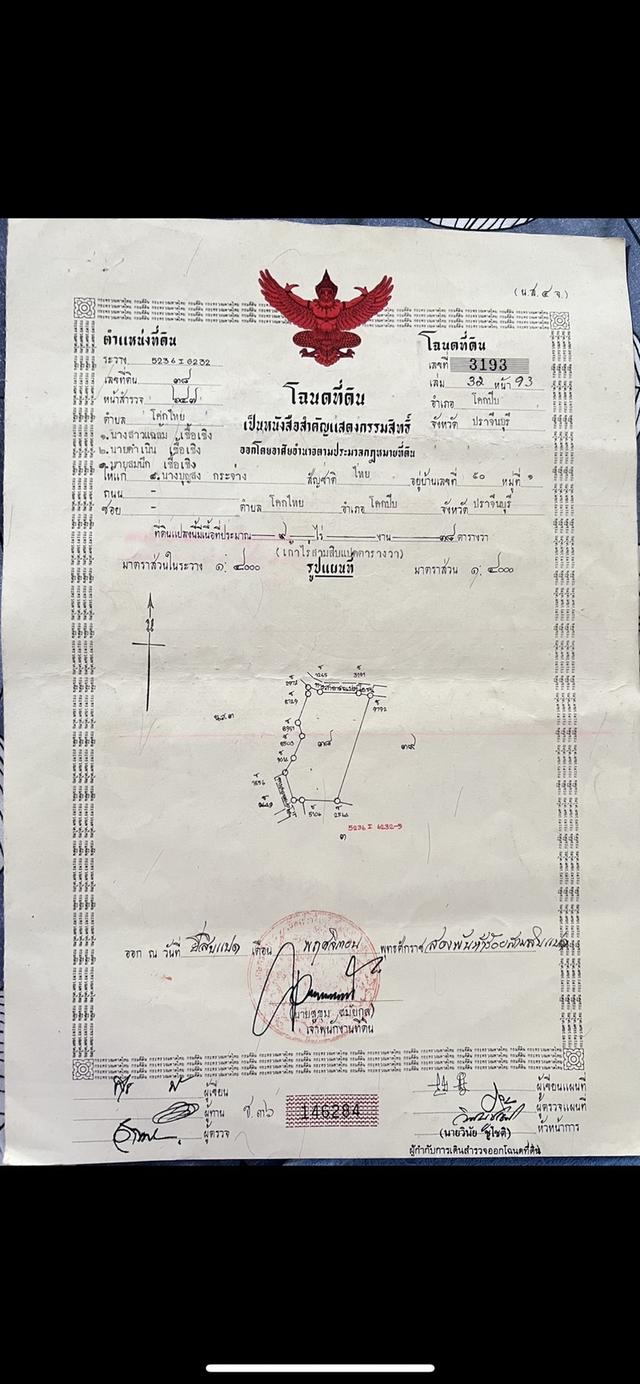 (น.ส.๔ จ.)
ตำแหน่งที่ดิน
ระวาง 5236 I 6232
เลขที่ดิน ๓๘
หน้าสำรวจ
ตำบล โคกไทย
โฉนดที่ดิน
เลขที่ 3193
เล่ม 32 หน้า 93
อำเภอ โคกปีบ
จังหวัด ปราจีนบุรี
โฉนดที่ดิน
เป็นหนังสือสำคัญแสดงกรรมสิทธิ์
ออกโดยอาศัยอำนาจตามประมวลกฎหมายที่ดิน
๑.นางสาวแฉล้ม เชื้อเชิง
๒.นายดำเนิน เชื้อเชิง
๓.นายสมนึก เชื้อเชิง
ให้แก่ ๔.นางบุญส่ง กระจ่าง สัญชาติ ไทย อยู่บ้านเลขที่ ๖๐ หมู่ที่ ๑
ถนน -
ซอย - ตำบล โคกไทย อำเภอ โคกปีบ จังหวัด ปราจีนบุรี
ที่ดินแปลงนี้มีเนื้อที่ประมาณ ๙ ไร่ - งาน ๓๘ ตารางวา
(เก้าไร่สามสิบแปดตารางวา)
มาตราส่วนในระวาง ๑: ๔๐๐๐ รูปแผนที่ มาตราส่วน ๑: ๔๐๐๐
น
น.ส.๓
๓๘
๓๙
5236 I 6232-5
๓
ออก ณ วันที่ ยี่สิบแปด เดือน พฤศจิกายน พุทธศักราช สองพันห้าร้อยสามสิบแปด
เจ้าพนักงานที่ดิน
ผู้เขียน
ผู้ทาน
ผู้ตรวจ
ช.๓๖
146284
ผู้เขียนแผนที่
ผู้ตรวจแผนที่
หัวหน้าการ
(นายวินัย ชูโชติ)
ผู้กำกับการเดินสำรวจออกโฉนดที่ดิน